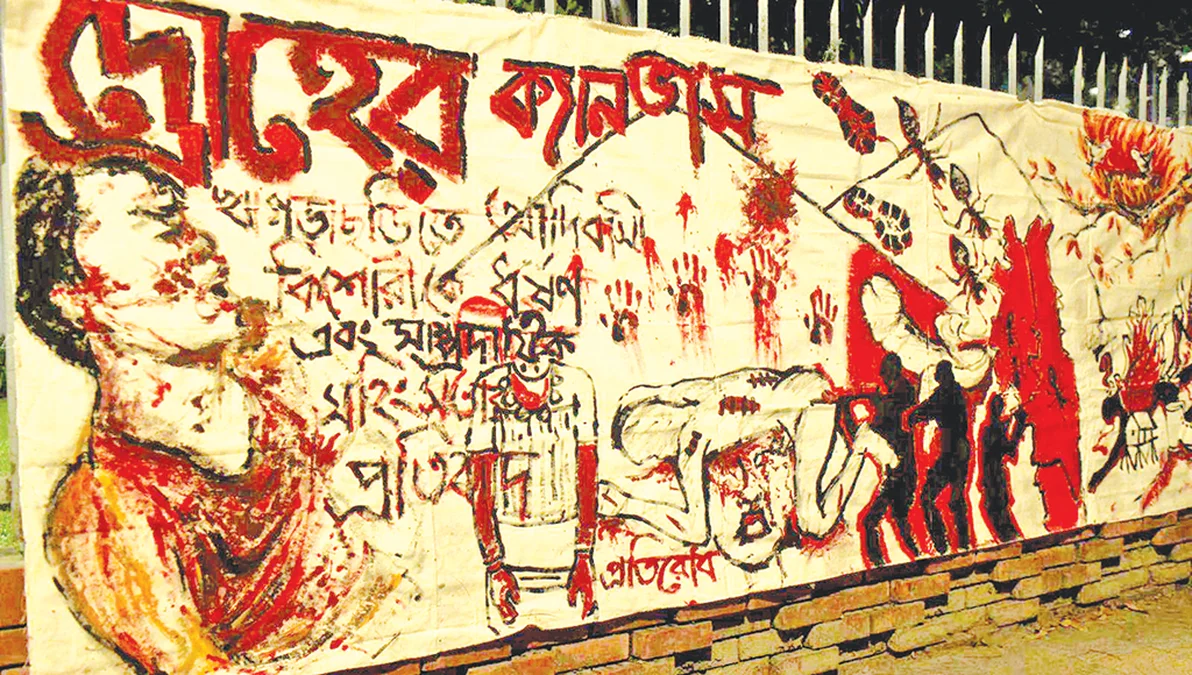 দ্রোহের ক্যানভাস
খাগড়াছড়িতে আদিবাসী
কিশোরীকে ধর্ষণ
এবং সাম্প্রদায়িক
সহিংসতার
প্রতিবাদ
প্রতিরোধ